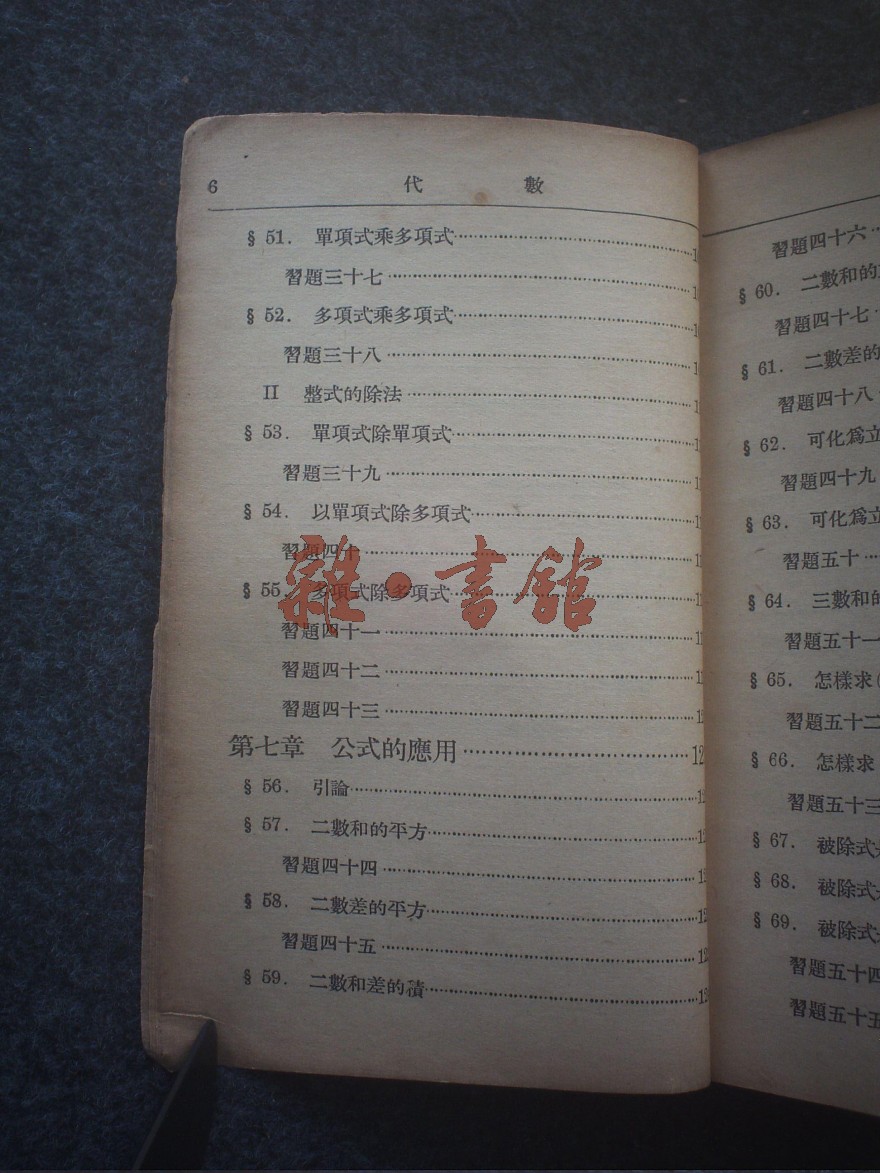 6 代 數
§ 51. 單項式乘多項式
習題三十七
§ 52. 多項式乘多項式
習題三十八
II 整式的除法
§ 53. 單項式除單項式
習題三十九
§ 54. 以單項式除多項式
習題四十
§ 55. 多項式除多項式
習題四十一
習題四十二
習題四十三
第七章 公式的應用
§ 56. 引論
§ 57. 二數和的平方
習題四十四
§ 58. 二數差的平方
習題四十五
§ 59. 二數和差的積
雜·書館
習題四十六
§ 60. 二數和的
習題四十七
§ 61. 二數差的
習題四十八
§ 62. 可化爲立
習題四十九
§ 63. 可化爲立
習題五十
§ 64. 三數和的
習題五十一
§ 65. 怎樣求
習題五十二
§ 66. 怎樣求
習題五十三
§ 67. 被除式
§ 68. 被除式
§ 69. 被除式
習題五十四
習題五十五